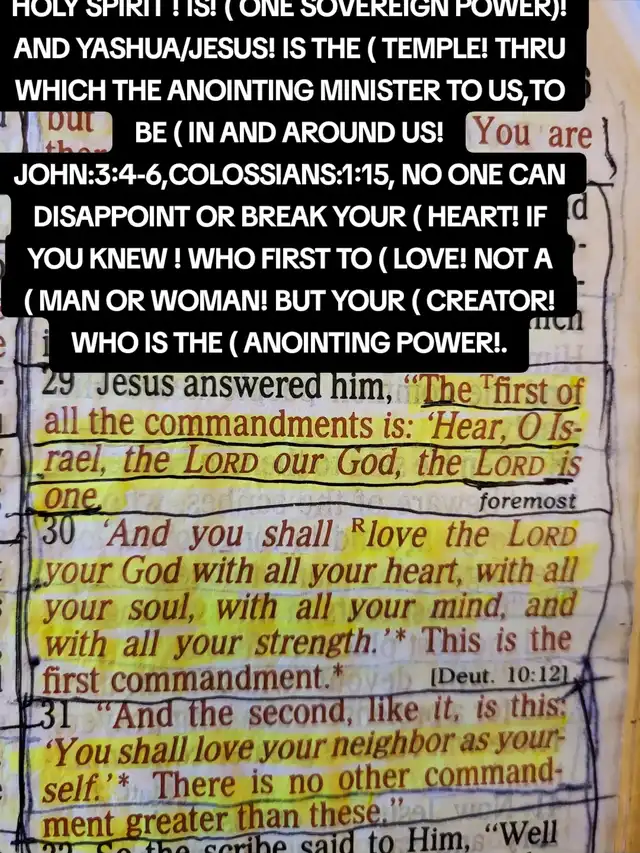 HOLY SPIRIT ! IS! ( ONE SOVEREIGN POWER)!
AND YASHUA/JESUS! IS THE ( TEMPLE! THRU
WHICH THE ANOINTING MINISTER TO US,TO
BE ( IN AND AROUND US!
JOHN:3:4-6,COLOSSIANS:1:15, NO ONE CAN
DISAPPOINT OR BREAK YOUR ( HEART! IF
YOU KNEW ! WHO FIRST TO ( LOVE! NOT A
( MAN OR WOMAN! BUT YOUR ( CREATOR!
WHO IS THE ( ANOINTING POWER!.
but
You are
29 Jesus answered him, “The ᵀfirst of
all the commandments is: ‘Hear, O Is-
rael, the LORD our God, the LORD is
one.
foremost
30 ‘And you shall ᴿlove the LORD
your God with all your heart, with all
your soul, with all your mind, and
with all your strength.’* This is the
first commandment.* [Deut. 10:12]
31 “And the second, like it, is this:
‘You shall love your neighbor as your-
self.’* There is no other command-
ment greater than these.”
32 So the scribe said to Him, “Well